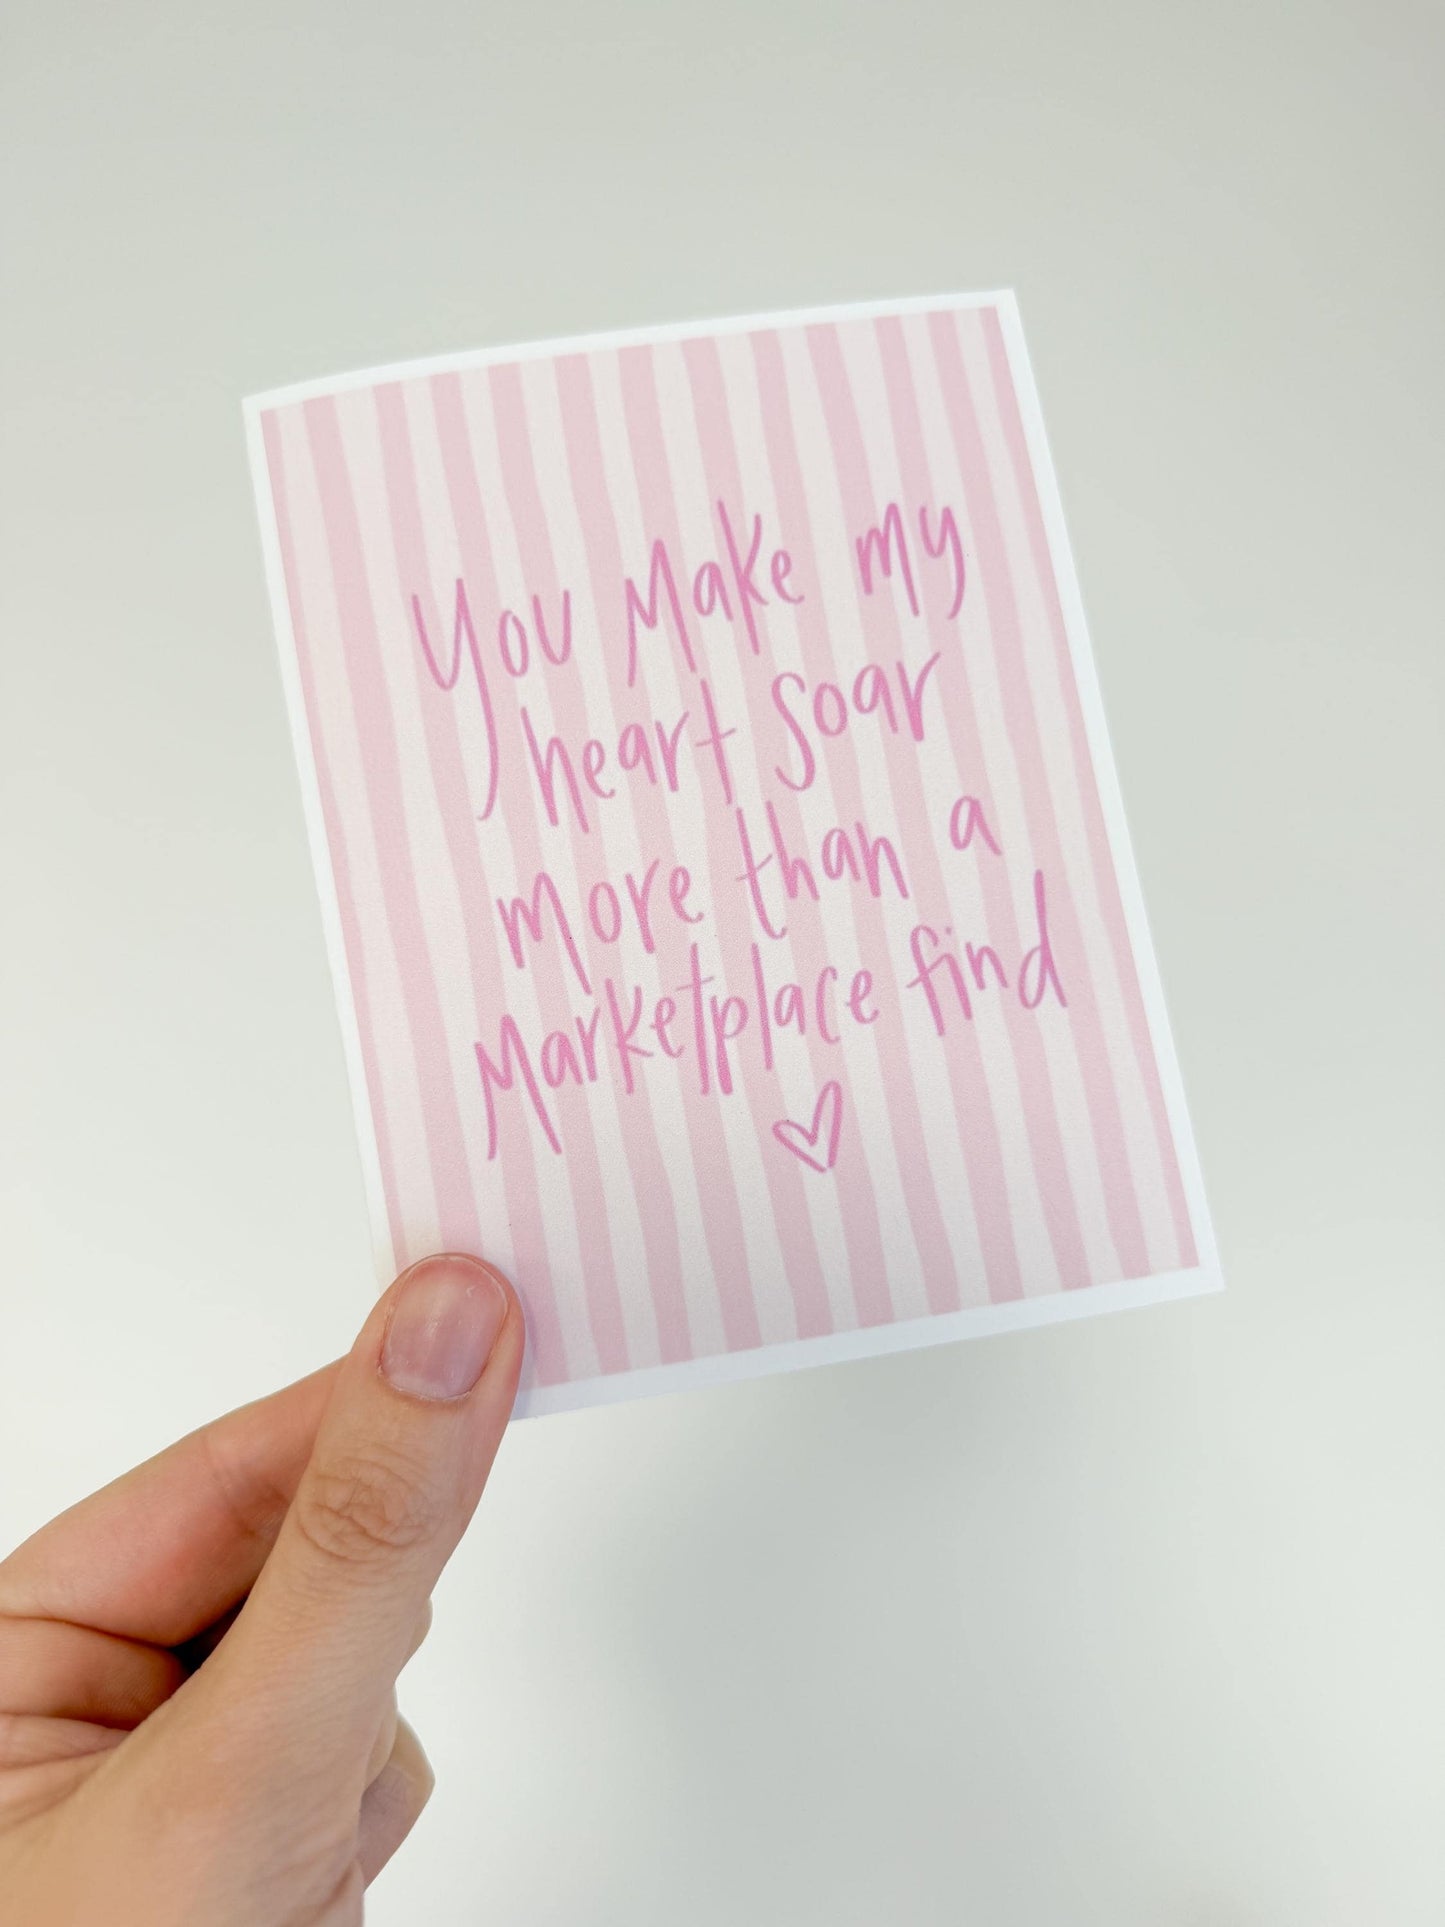 You Make my
heart soar
more than a
Marketplace find